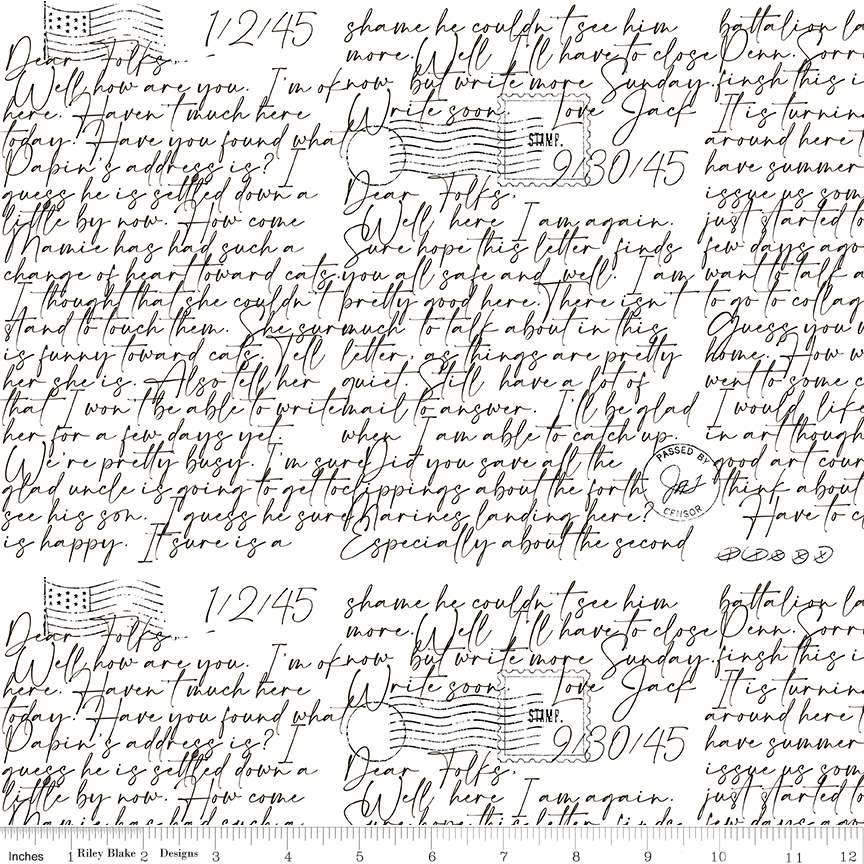 1/2/45
Dear Folks,
Well, how are you. I'm ok
here. Haven't much here
today. Have you found what
Papin's address is? I
guess he is settled down a
little by now. How come
Mamie has had such a
change of heart toward cats.
I thought that she couldn't
stand to touch them. She sur
is funny toward cats. Tell
her she is. Also tell her
that I won't be able to write
her for a few days yet.
We're pretty busy. I'm sure
glad uncle is going to get to
see his son. I guess he sure
is happy. It sure is a
shame he couldn't see him
more. Well I'll have to close
now but write more Sunday.
Write soon. Love Jack
STAMP.
9/30/45
Dear Folks,
Well, here I am again.
Sure hope this letter finds
you all safe and well. I am
pretty good here. There isn't
much to talk about in this
letter, as things are pretty
quiet. Still have a lot of
mail to answer. I'll be glad
when I am able to catch up.
Did you save all the
clippings about the forth
Marines landing here?
Especially about the second
PASSED BY
CENSOR
battalion la
Penn. Sorr
finsh this i
It is turnin
around here
have summer
issue us som
just started to
few days ago
want to talk a
to go to collag
Guess you w
home. How w
went to some c
I would lik
in art though
good art cour
think about
Have to c
1/2/45
Dear Folks,
Well, how are you. I'm ok
here. Haven't much here
today. Have you found what
Papin's address is? I
guess he is settled down a
little by now. How come
Mamie has had such a
shame he couldn't see him
more. Well I'll have to close
now but write more Sunday.
Write soon. Love Jack
STAMP.
9/30/45
Dear Folks,
Well, here I am again.
Sure hope this letter finds
battalion la
Penn. Sorr
finsh this i
It is turnin
around here
have summer
issue us som
just started to
few days ago
Inches 1 Riley Blake 2 Designs 3 4 5 6 7 8 9 10 11 12